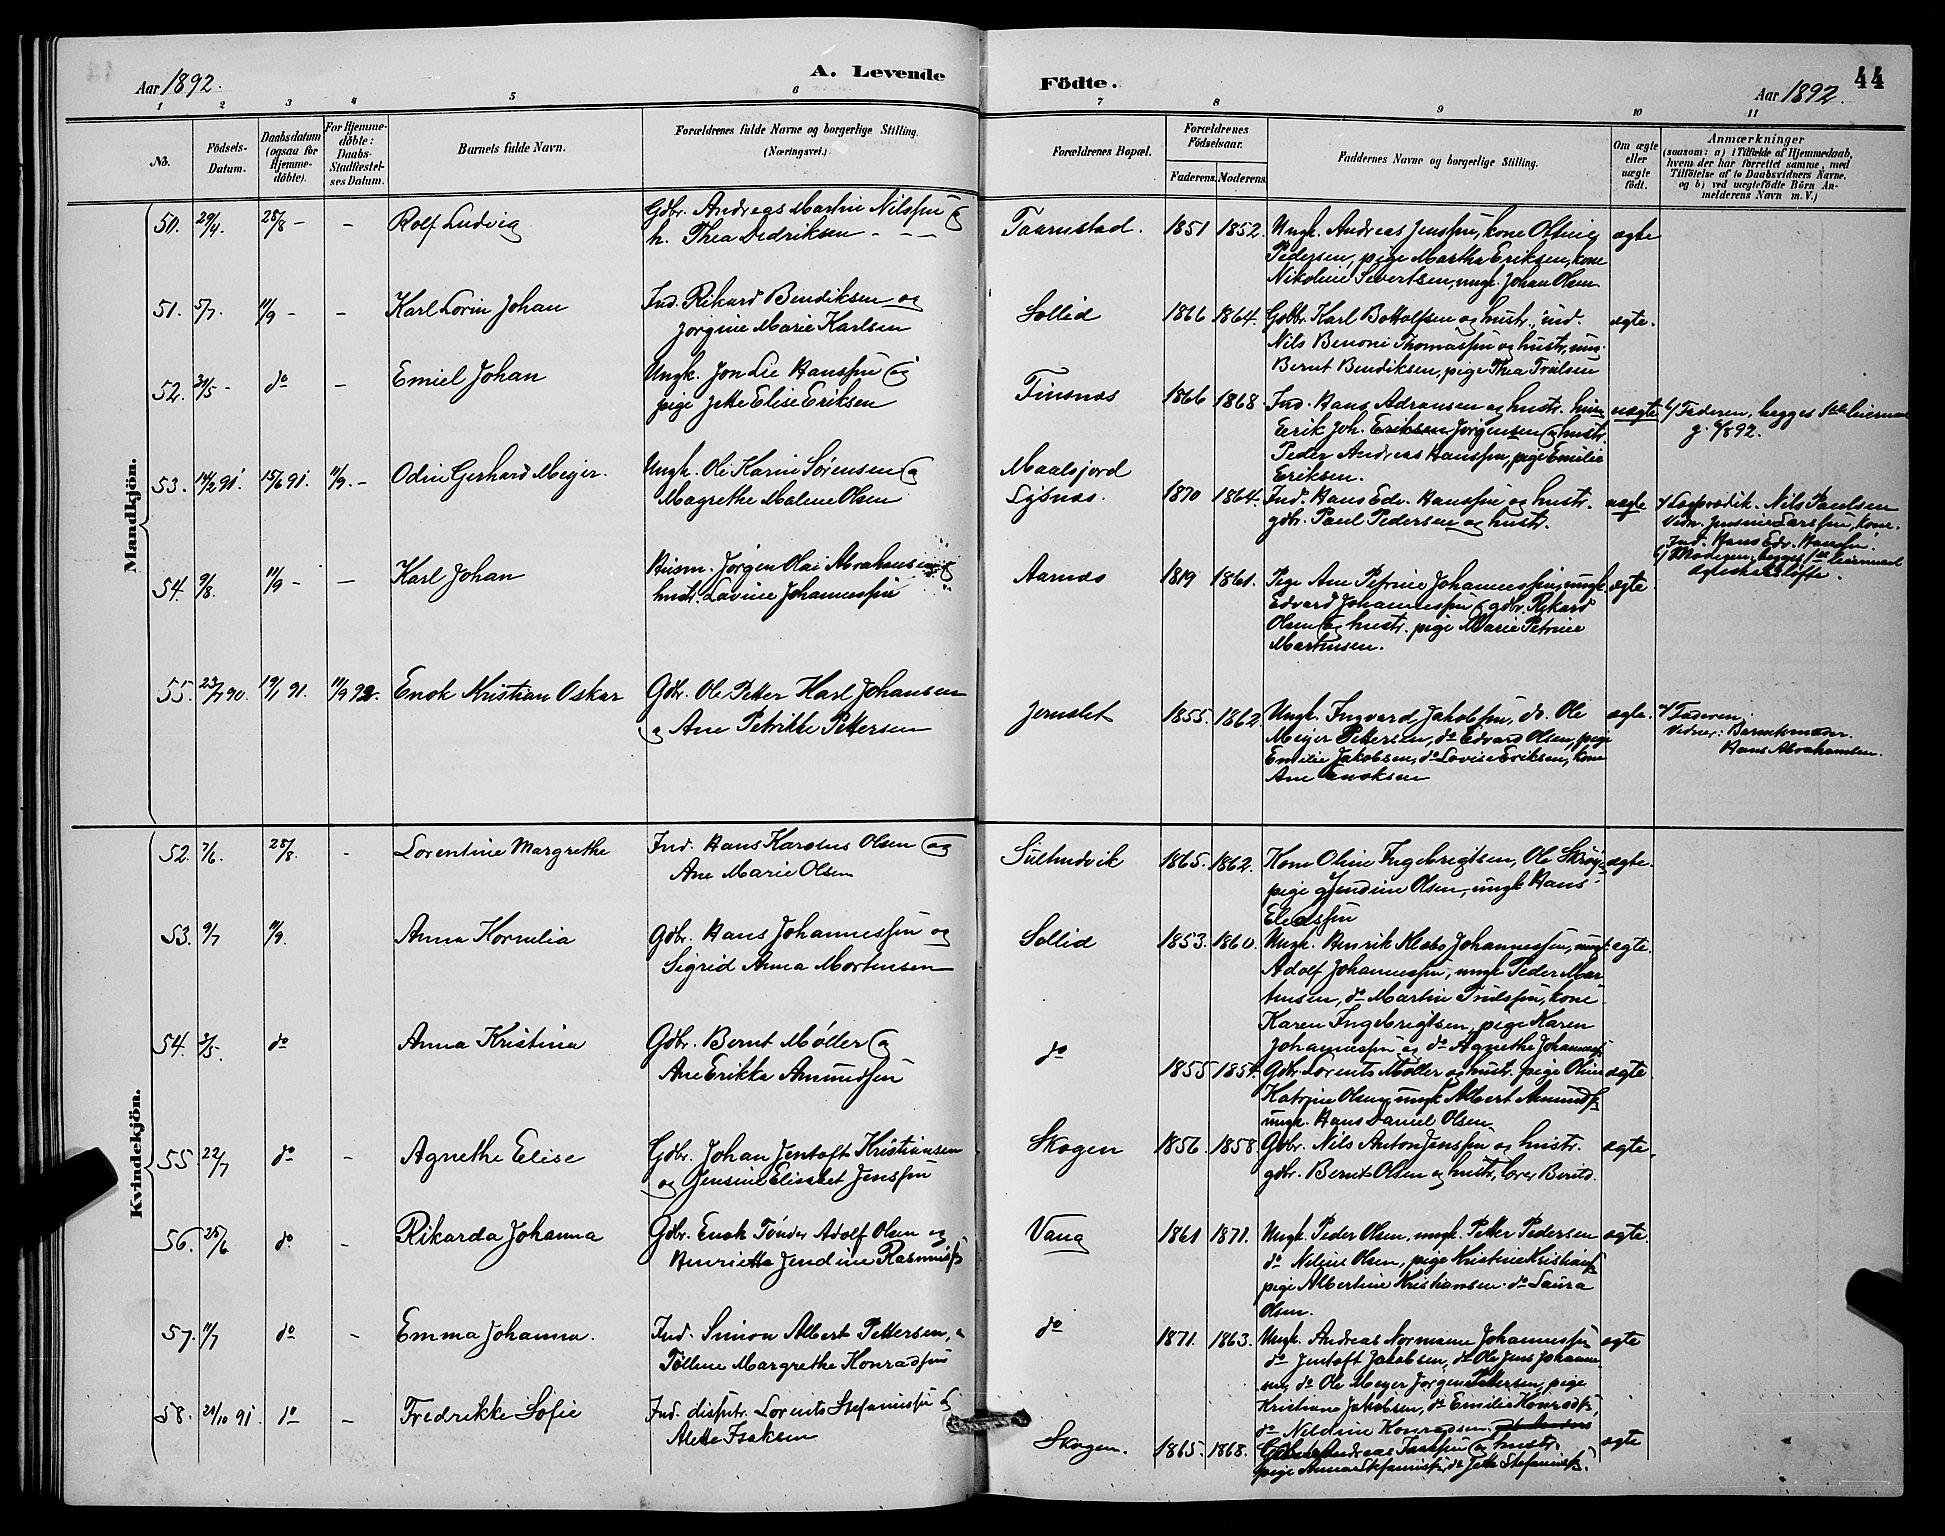 Aar 1892.
A. Levende Födte.
Aar 1892.
44
1 2 3 4 5 6 7 8 9 10 11
No.
Födsels-Datum.
Daabsdatum (ogsaa for Hjemme-döbte).
For Hjemme-döbte: Daabs-Stadfæstel-ses Datum.
Barnets fulde Navn.
Forældrenes fulde Navne og borgerlige Stilling. (Næringsvei.)
Forældrenes Bopæl.
Forældrenes Födselsaar.
Faderens. Moderens.
Faddernes Navne og borgerlige Stilling.
Om ægte eller uægte födt.
Anmærkninger
(saasom: a) i Tilfælde af Hjemmedaab,
hvem der har forrettet samme, med
Tilföielse af to Daabsvidners Navne,
og b) ved uægtefödte Börn An-
melderens Navn m. V.)
Mandkjön.
50. 29/4 28/8 - - Rolf Ludvig
Gdbr. Andreas Martin Nilssen og
h. Thea Dedriksen - - -
Taarnstad. 1851 1852.
Ungk. Andreas Jenssen, kone Olsine
Pedersen, pige Martha Eriksen, kone
Nikoline Sivertsen, ungk. Johan Olsen
ægte
51. 5/7. 11/9 - - Karl Lorin Johan
Ind. Rikard Bendiksen og
Jørgine Marie Karlsen
Sollid 1866 1864.
Gdbr. Karl Bottolfsen og hustr., ind.
Nils Benoni Thomassen og hustr, ung.
Bernt Bendiksen, pige Thea Trulsen
ægte.
52. 31/5 - do - Emiel Johan
Ungk. Jon Lie Hanssen og
pige Jette Elise Eriksen
Finsnæs 1866 1868
Ind. Hans Adransen og hustr.
Erik Joh. Eriksen Jørgensen og hustr.
Peder Andreas Hanssen, pige Emilie
Eriksen.
uægte
b/ Faderen, begges 1ste leiermaal
53. 14/2 91. 15/6 91. 11/9. - Odin Gerhard Meyer.
Ungk. Ole Karin Sørensen og
Magrethe Malene Olsen
Maalsjord
Lysnæs. 1870 1864.
Ind. Hans Edv. Hanssen og hustr.
gdbr. Paul Pedersen og hustr.
uægte
a/ Lægprædik. Nils Paulsen
Vidn. Jensine Larssen, kone.
Ind. Hans Edv. Hanssen.
b/ Moderen; begges 1ste leiermaal
Ægteskabsløfte.
54. 9/8. 11/9 - - Karl Johan
Husm. Jørgen Olai Abrahamsen og
hustr. Lavine Johannessen
Aarnæs 1819 1861.
Pige Ane Petrine Johannessen, ungk.
Edvard Johannessen og gdbr. Rikard
Olsen og hustr. pige Marie Petrine
Martinsen.
ægte.
55. 23/7 90. 19/1 91. 11/9 92. Enok Kristian Oskar
Gdbr. Ole Petter Karl Johansen
og Ane Petrikke Pettersen
Jernslet 1855. 1862.
Ungk. Ingvard Jakobsen, do. Ole
Meyer Pettersen, do Edvard Olsen, pige
Emilie Jakobsen, do Lovise Eriksen, kone
Ane Enoksen
ægte.
a/ Faderen;
Vidner: Barnets moder.
Hans Abrahamsen.
Kvindekjön.
52. 7/6. 28/8. - Lorentine Margrethe
Ind. Hans Karstens Olsen og
Ane Marie Olsen
Sultindvik 1865. 1862.
Kone Oline Ingebrigtsen, Ole
pige Jendine Olsen, ungk Hans
Eleassen
ægte.
53. 9/7 11/9. Anna Kornelia
Gdbr. Hans Johannessen og
Sigrid Anna Mortensen
Sollid 1853. 1860.
Ungk. Henrik Klæbo Johannessen, ungk.
Adolf Johannessen, ungk Peder Mar
tinsen, do Martin Trulssen, kone
Karen Ingebrigtsen, pige Karen
Johannessen og do Agnethe Johanness.
ægte.
54. 3/5. do Anna Kristina
Gdbr. Bernt Møller og
Ane Erikke Amundsen
do 1855 1854
Gdbr. Lorents Møller og hustr. pige Oline
Katrine Olsen, ungk Albert Amunds.
ungk. Hans Daniel Olsen.
ægte
55 22/7 do - Agnethe Elise
Gdbr. Johan Jentoft Kristiansen
og Jensine Elisabet Jenssen
Skogen 1856 1858
Gdbr. Nils Anton Jenssen og hustr.
gdbr. Bernt Olsen og hustr,
ægte.
56. 25/6 do. - Rikarda Johanna
Gdbr. Enok Tønder Adolf Olsen og
Henriette Jendine Rasmuss.
Vang 1861 1871.
Ungk. Peder Olsen, ungk. Petter Pedersen
do Niline Olsen, pige Kristine Kristians.
pige Albertine Kristiansen. do Laura
Olsen.
ægte
57. 11/7 do - Emma Johanna.
Ind. Simon Albert Pettersen, og
Tølline Margrethe Konradsen
do 1871. 1863.
Ungk. Andreas Normann Johannessen
do Jentoft Jakobsen, do Ole Jens Johanne-
sen, do Ole Meyer Jørgen Pettersen, pige
Kristiane Jakobsen, do Emilie Konrads.,
do Nildine Konradsen
ægte
58. 21/10 91 do - Fredrikke Sofie
Ind. disputr. Lorents Stefanussen og
Alette Isaksen
Skogen. 1865. 1868.
Andreas Isaksen og hustr.
pige Anna Stefanuss., do Jette Stefanuss.
ægte